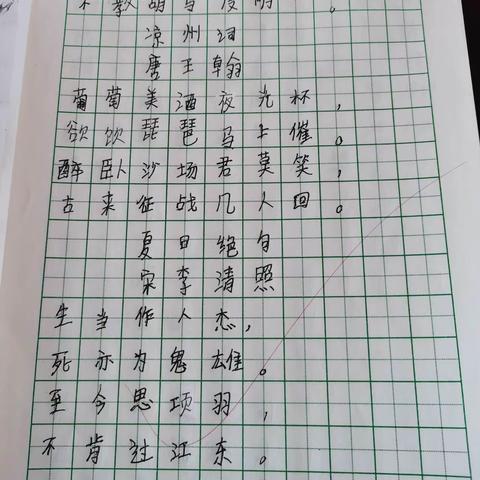 不教胡马度阴。
凉州词
唐王翰
葡萄美酒夜光杯，
欲饮琵琶马上催。
醉卧沙场君莫笑，
古来征战几人回。
夏日绝句
宋李清照
生当作人杰，
死亦为鬼雄。
至今思项羽，
不肯过江东。